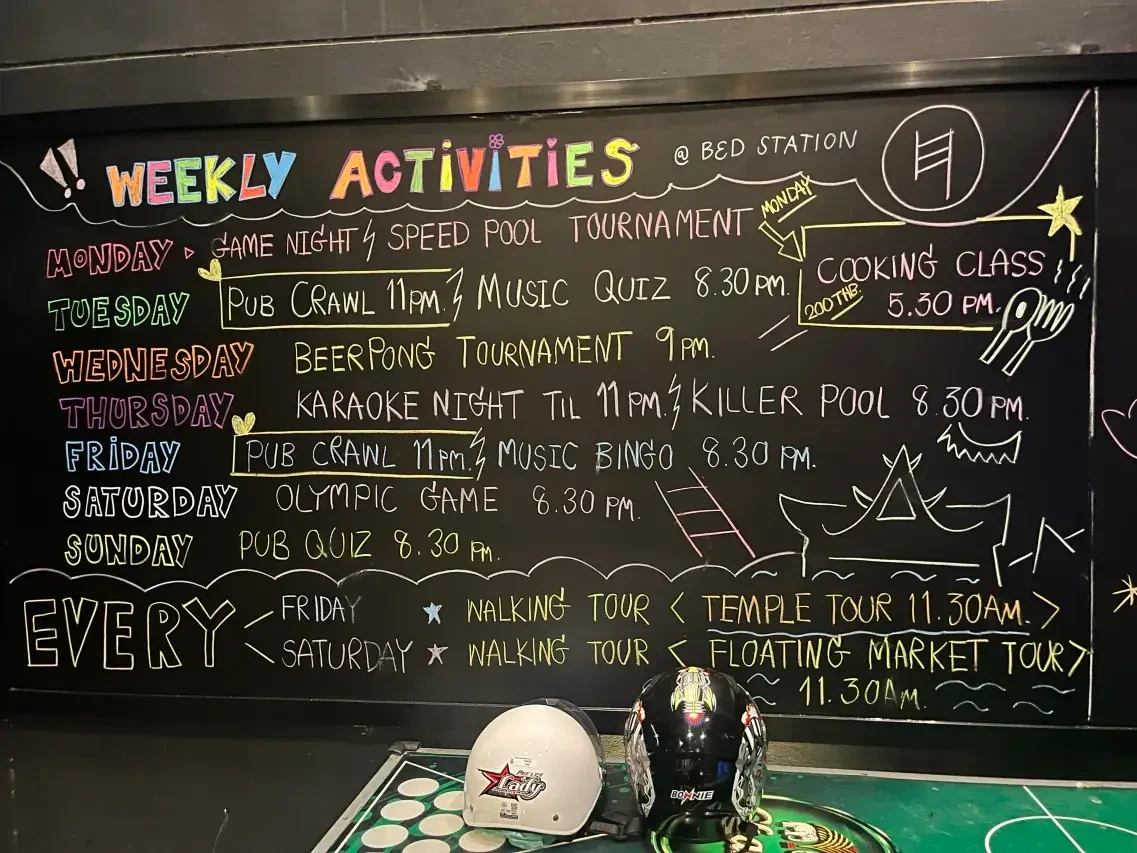 !! WEEKLY ACTIVITIES @ BED STATION
MONDAY GAME NIGHT SPEED POOL TOURNAMENT
MONDAY
COOKING CLASS
200 THB. 5.30 PM.
TUESDAY PUB CRAWL 11PM. MUSIC QUIZ 8.30 PM.
WEDNESDAY BEERPONG TOURNAMENT 9PM.
THURSDAY KARAOKE NIGHT TIL 11PM. KILLER POOL 8.30 PM.
FRIDAY PUB CRAWL 11PM. MUSIC BINGO 8.30 PM.
SATURDAY OLYMPIC GAME 8.30 PM.
SUNDAY PUB QUIZ 8.30 PM.
EVERY
FRIDAY WALKING TOUR < TEMPLE TOUR 11.30AM. >
SATURDAY WALKING TOUR < FLOATING MARKET TOUR>
11.30AM.
Lady
BONNIE